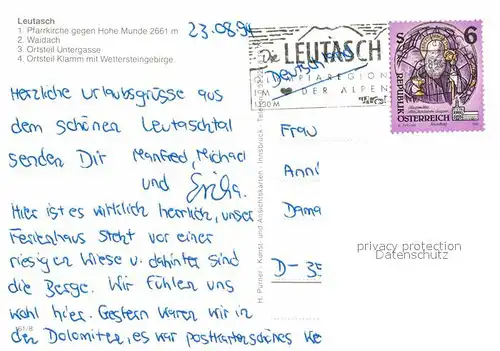 Leutasch
1. Pfarrkirche gegen Hohe Munde 2661 m
2. Waidach
3. Ortsteil Untergasse
4. Ortsteil Klamm mit Wettersteingebirge
23.08.94
Die LEUTASCH
OLYMPIAREGION
IM ♥ DER ALPEN
1130 M Tirol
Deutschland
S 6
REPUBLIK
ÖSTERREICH
Herzliche Urlaubsgrüsse aus
dem schönen Leutaschtal
senden Dir Manfred, Michael
und Erika.
Hier ist es wirklich herrlich, unser
Ferienhaus steht vor einer
riesigen Wiese u. dahinter sind
die Berge. Wir fühlen uns
wohl hier. Gestern waren wir in
den Dolomiten, es war postkartenschönes We
H. Purner - Kunst- und Ansichtskarten - Innsbruck - Telefon
Frau
Anni
Dama
D-35
privacy protection
Datenschutz
61/8